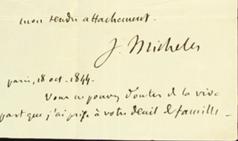 mon tendre attachement.
J. Michelet
paris, 18 oct. 1844.
Vous ne pouvez douter de la vive
part que j'ai prise à votre deuil de famille.